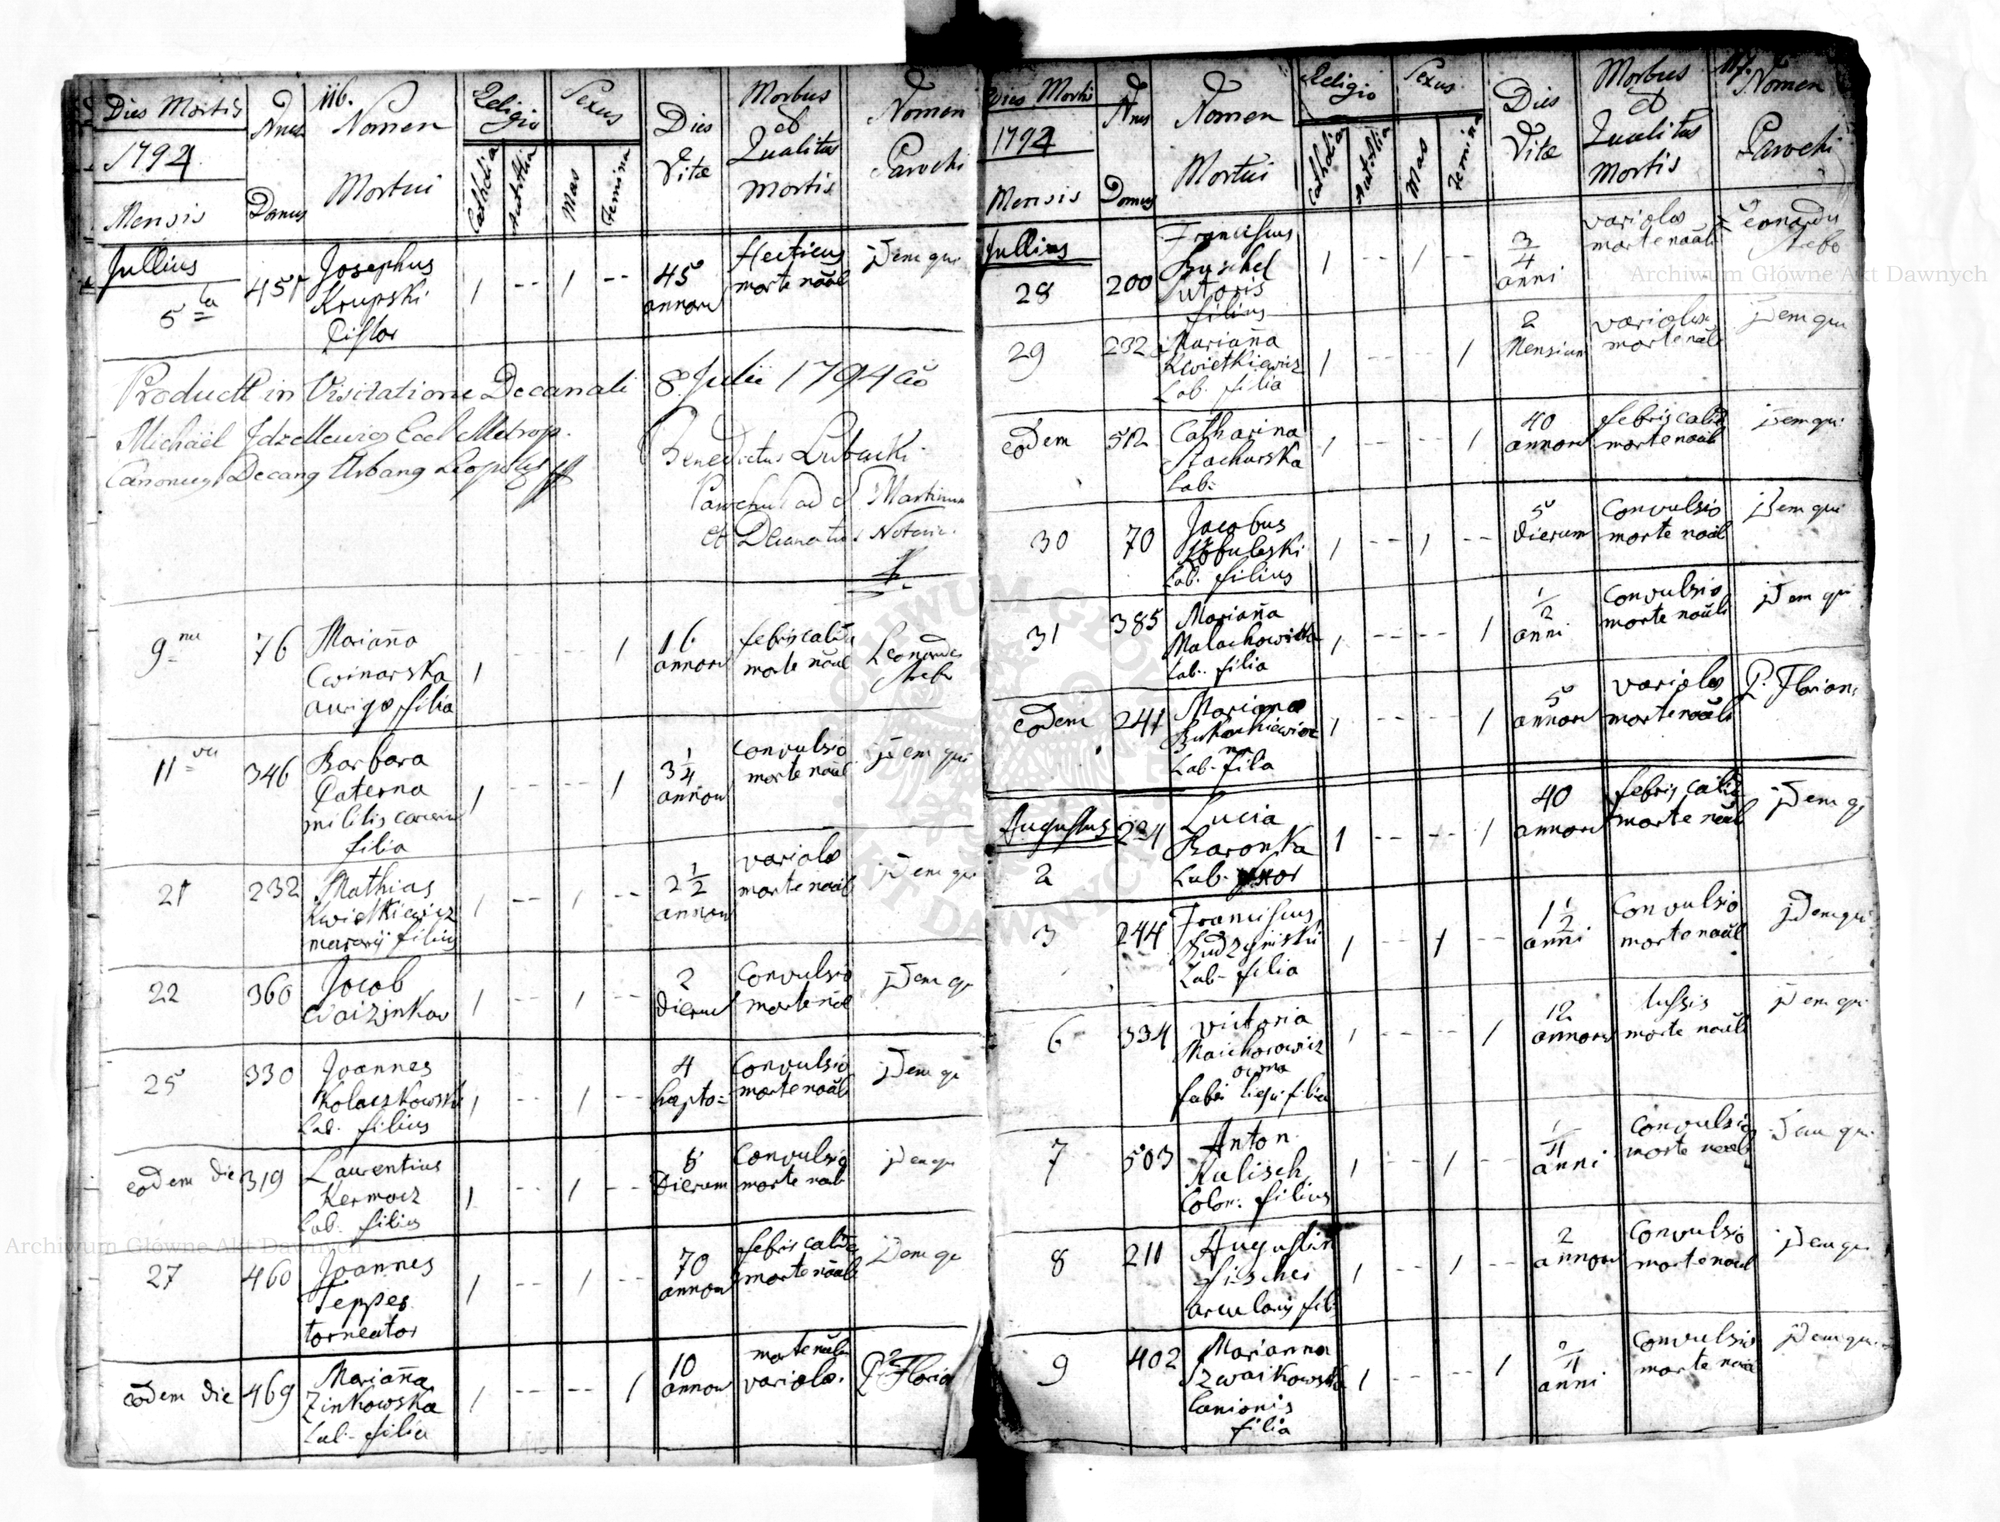 116.
Dies Mortis
1794
Mensis
Nrus
Domus
Nomen
Mortui
Religio
Catholica
Autaltera
Sexus
Mas
Femina
Dies
Vitæ
Morbus
et
Qualitas
Mortis
Nomen
Parochi
Jullius
5ta
451
Josephus
Krupski
Pistor
1 -- 1 --
45
annoru
Hecticus
morte naâl
jdem qui
Product in Visitatione Decanali 8 Julii 1794
Michaël
Canonicus Decang Urbang Leopolis
Benedictus
Parochus ad S. Martinum
et Decanatus Notarius
9na
76
Marianna
Cwinarska
aurigæ filia
1 1
16
annoru
febris calida
morte naâl
Leonardus
11
346
Barbara
Paterna
militis
filia
1 -- -- 1
3 1/4
annoru
Convulsio
morte naâl
jdem qui
21
232
Mathias
Kwietkiewicz
filius
1 -- 1 --
2 1/2
annoru
variolæ
morte naâl
jdem qui
22
360
Jacob
1 1 --
2
Dierum
Convulsio
morte naâl
jdem qui
25
330
Joannes
Kolaczkowski
Lab. filius
1 -- 1
4
Convulsio
morte naâl
jdem qui
eodem die
319
Laurentius
Lab. filius
1 -- 1 --
8
Dierum
Convulsio
morte naâl
jdem qui
27
460
Joannes
Tepper
torneator
1 -- 1 --
70
annoru
febris calida
morte naâl
jdem qui
eodem die
469
Marianna
Zinkowska
Lab. filia
1 -- -- 1
10
annoru
morte naâl
variolæ
P. Floria
117.
Dies Mortis
1794
Mensis
Nrus
Domus
Nomen
Mortui
Religio
Catholica
Autaltera
Sexus
Mas
Femina
Dies
Vitæ
Morbus
et
Qualitas
Mortis
Nomen
Parochi
Jullius
28
200
Franciscus
Buschel
Sutoris
filius
1 -- 1 --
3/4
anni
variolæ
morte naâli
Leonardus
29
232
Marianna
Kwietkiewicz
Lab. filia
1 -- -- 1
2
Mensium
variolæ
morte naâl
jdem qui
eodem
512
Catharina
Stachurska
Lab.
1 -- -- 1
40
annoru
febris calid
morte naâl
jdem qui
30
70
Jacobus
Lab. filius
1 -- 1 --
5
Dierum
Convulsio
morte naâl
jdem qui
31
385
Marianna
Malachowska
Lab. filia
1 -- -- 1
1/2
anni
Convulsio
morte naâli
jdem qui
eodem
241
Marianna
Lab. fila
1 -- -- 1
5
annoru
variolæ
morte naâli
P. Floriani
Augustus
2
224
Lucia
Baronka
Lab. uxor
1 -- -- 1
40
annoru
febris calid
morte naâl
jdem qui
3
244
Franciscus
Lab. filia
1 -- 1 --
1 1/2
anni
Convulsio
morte naâl
jdem qui
6
334
Victoria
fabri filia
1 -- -- 1
12
annoru
tussis
morte naâli
jdem qui
7
503
Anton
Kulisch
Colon. filius
1 -- 1 --
anni
Convulsio
morte naâl
jdem qui
8
211
Augustin
Fischer
arcularij fil.
1 -- 1 --
2
annoru
Convulsio
morte naâl
jdem qui
9
402
Marianna
Szwaikowska
Lanionis
filia
1 -- -- 1
anni
Convulsio
morte naâ
jdem qui
Archiwum Główne Akt Dawnych
Archiwum Główne Akt Dawnych
ARCHIWUM GŁÓWNE
AKT DAWNYCH